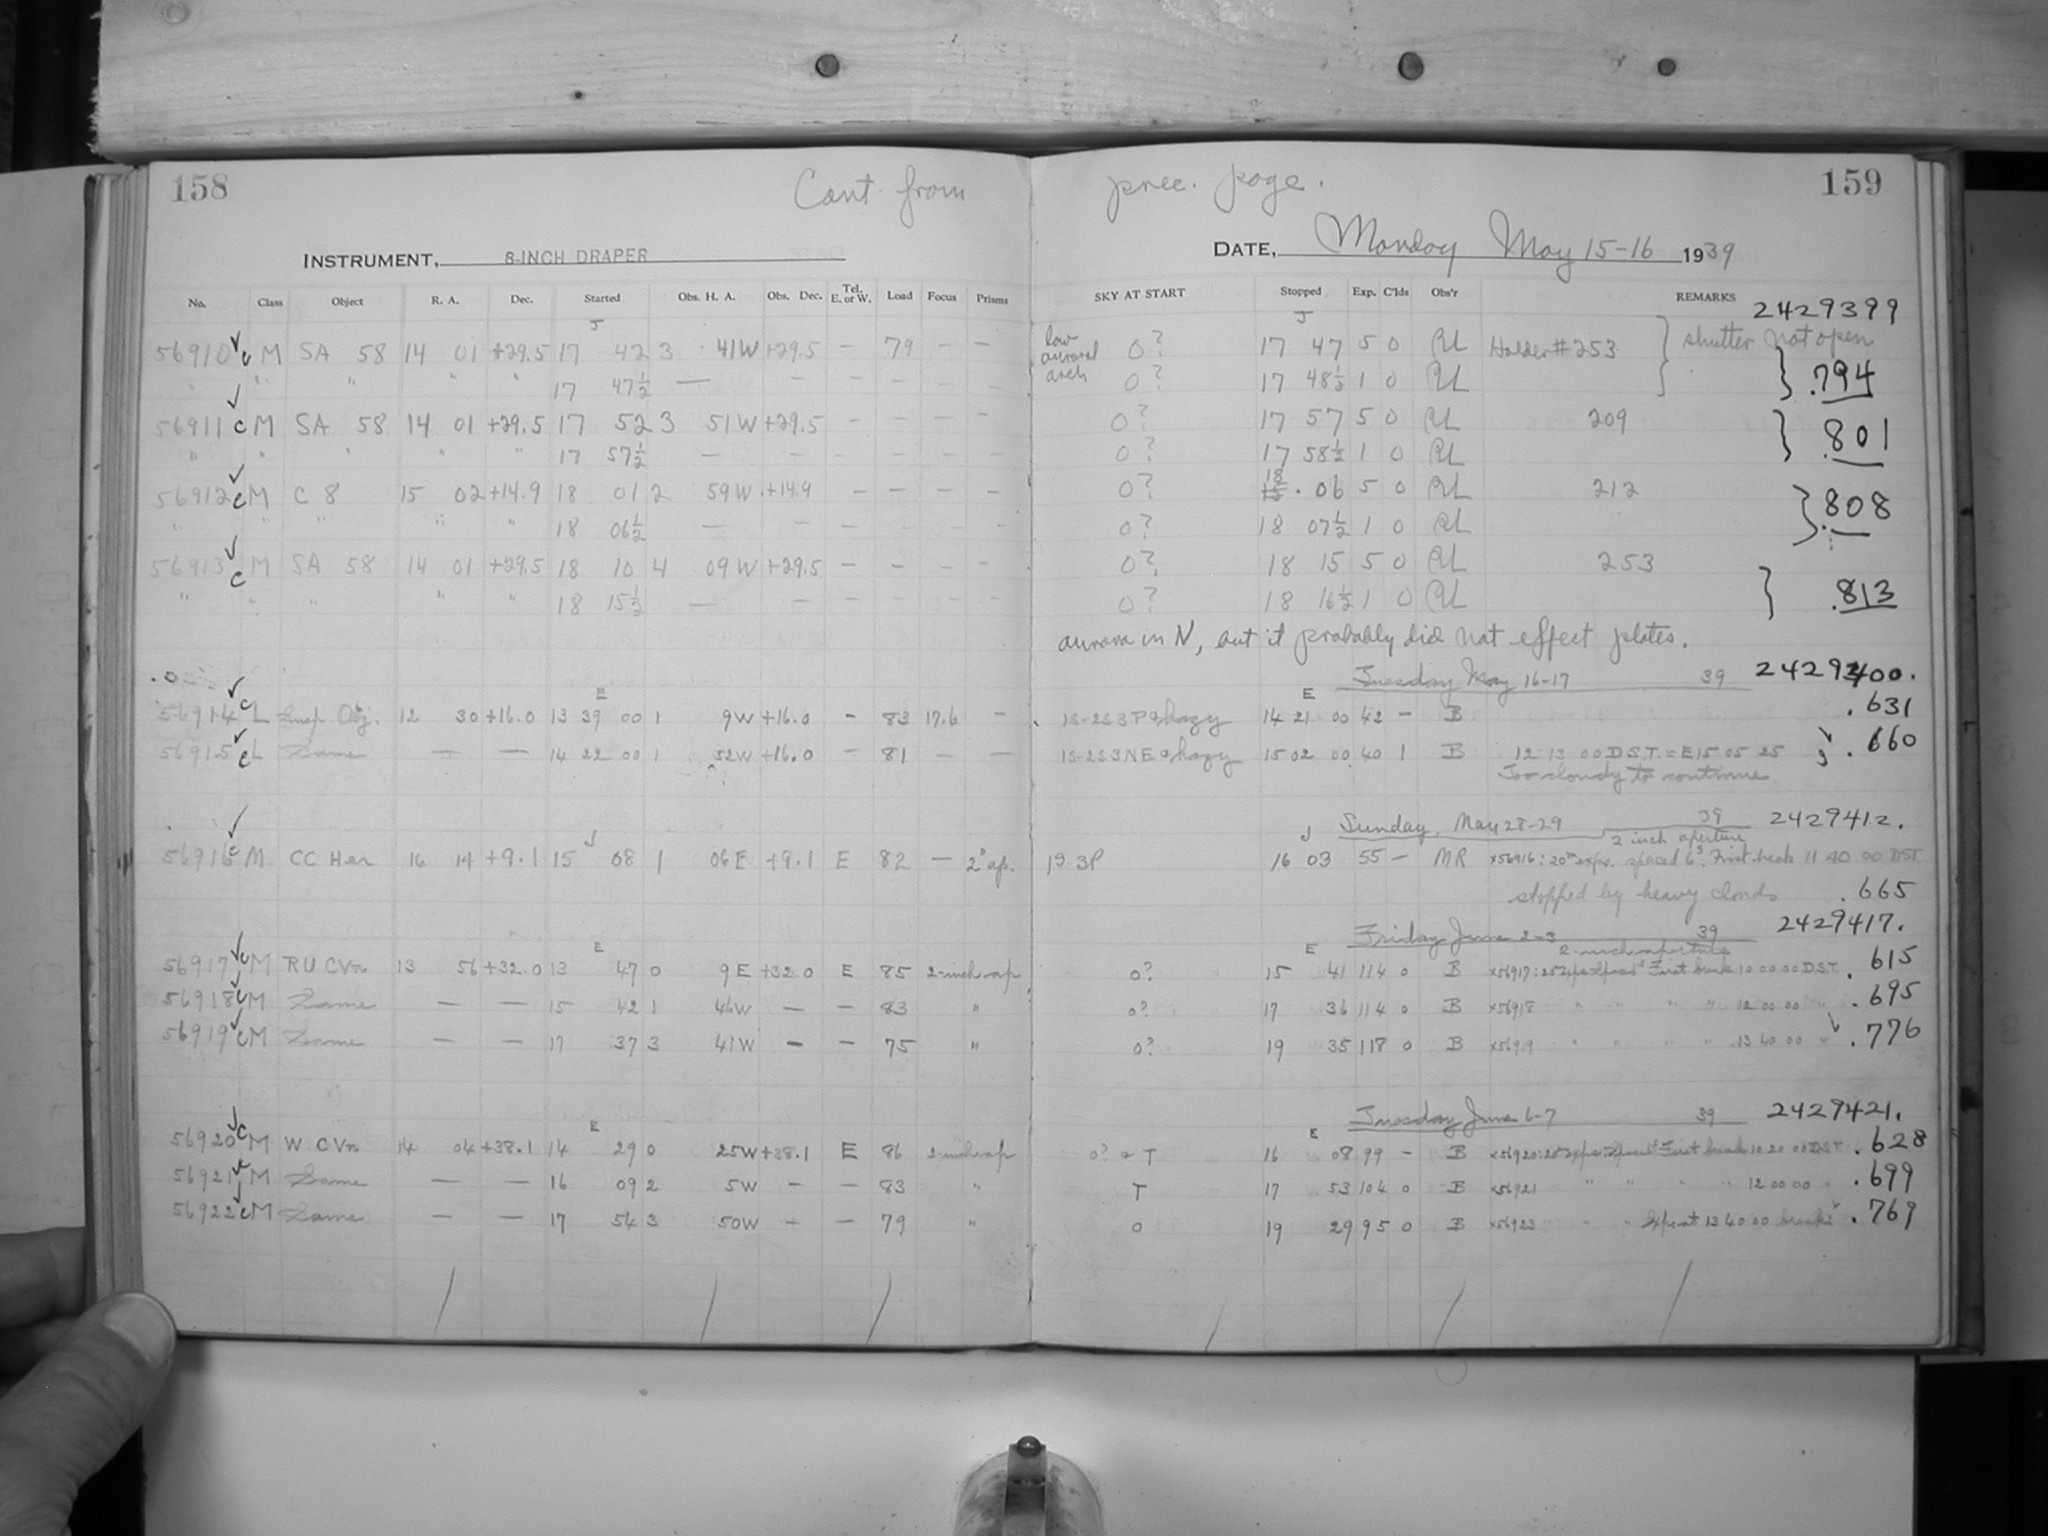 158 Cont from prec. page. 159
INSTRUMENT, 8-INCH DRAPER DATE, Monday May 15-16 1939
No. Class Object R. A. Dec. Started Obs. H. A. Obs. Dec. Tel. E. or W. Load Focus Prisms SKY AT START Stopped Exp. C'lds Obs'r REMARKS
2429399
J J
56910 c M SA 58 14 01 +29.5 17 42 3 41W +29.5 - 79 - - low auroral arch 0? 17 47 5 0 RL Holder #253 } shutter not open
" " " " " 17 47½ — - - - - - 0? 17 48½ 1 0 RL } .794
56911 c M SA 58 14 01 +29.5 17 52 3 51W +29.5 - - - - 0? 17 57 5 0 RL 209
" " " " " 17 57½ — - - - - - 0? 17 58½ 1 0 RL } .801
56912 c M C 8 15 02 +14.9 18 01 2 59W +14.9 - - - - 0? 18 06 5 0 RL 212
" " " " " 18 06½ — - - - - - 0? 18 07½ 1 0 RL } .808
56913 c M SA 58 14 01 +29.5 18 10 4 09W +29.5 - - - - 0? 18 15 5 0 RL 253
" " " " " 18 15½ — - - - - - 0? 18 16½ 1 0 RL } .813
aurora in N, but it probably did not effect plates.
Tuesday May 16-17 39 2429400.
E E
56914 c L Insp Obj. 12 30 +16.0 13 39 00 1 9W +16.0 - 83 17.6 - 1S-2S3P hazy 14 21 00 42 - B .631
56915 c L Same — — 14 22 00 1 52W +16.0 - 81 - - 1S-2S3NE hazy 15 02 00 40 1 B 12 13 00 D.S.T. = E 15 05 25 .660
Too cloudy to continue
Sunday, May 28-29 39 2429412.
J J 2 inch aperture
56916 c M CC Her 16 14 +9.1 15 08 1 06E +9.1 E 82 - 2" ap. 1S 3P 16 03 55 - MR x56916: 20m expo. spaced 6s. First break 11 40 00 DST
stopped by heavy clouds .665
Friday June 2-3 39 2429417.
E E 2-inch aperture
56917 c M RU CVn 13 56 +32.0 13 47 0 9E +32.0 E 85 2-inch ap 0? 15 41 114 0 B x56917: First break 10 00 00 D.S.T. .615
56918 c M Same — — 15 42 1 46W - - 83 " 0? 17 36 114 0 B x56918 " " " " 12 00 00 " .695
56919 c M Same — — 17 37 3 41W - - 75 " 0? 19 35 118 0 B x56919 " " " " 13 40 00 " .776
Tuesday June 6-7 39 2429421.
E E
56920 c M W CVn 14 04 +38.1 14 29 0 25W +38.1 E 86 2-inch ap 0? T 16 08 99 - B x56920: First break 10 20 00 DST .628
56921 c M Same — — 16 09 2 5W - - 83 " T 17 53 104 0 B x56921 " " " " 12 00 00 " .699
56922 c M Same — — 17 54 3 50W - - 79 " 0 19 29 95 0 B x56923 " " 13 40 00 breaks .769